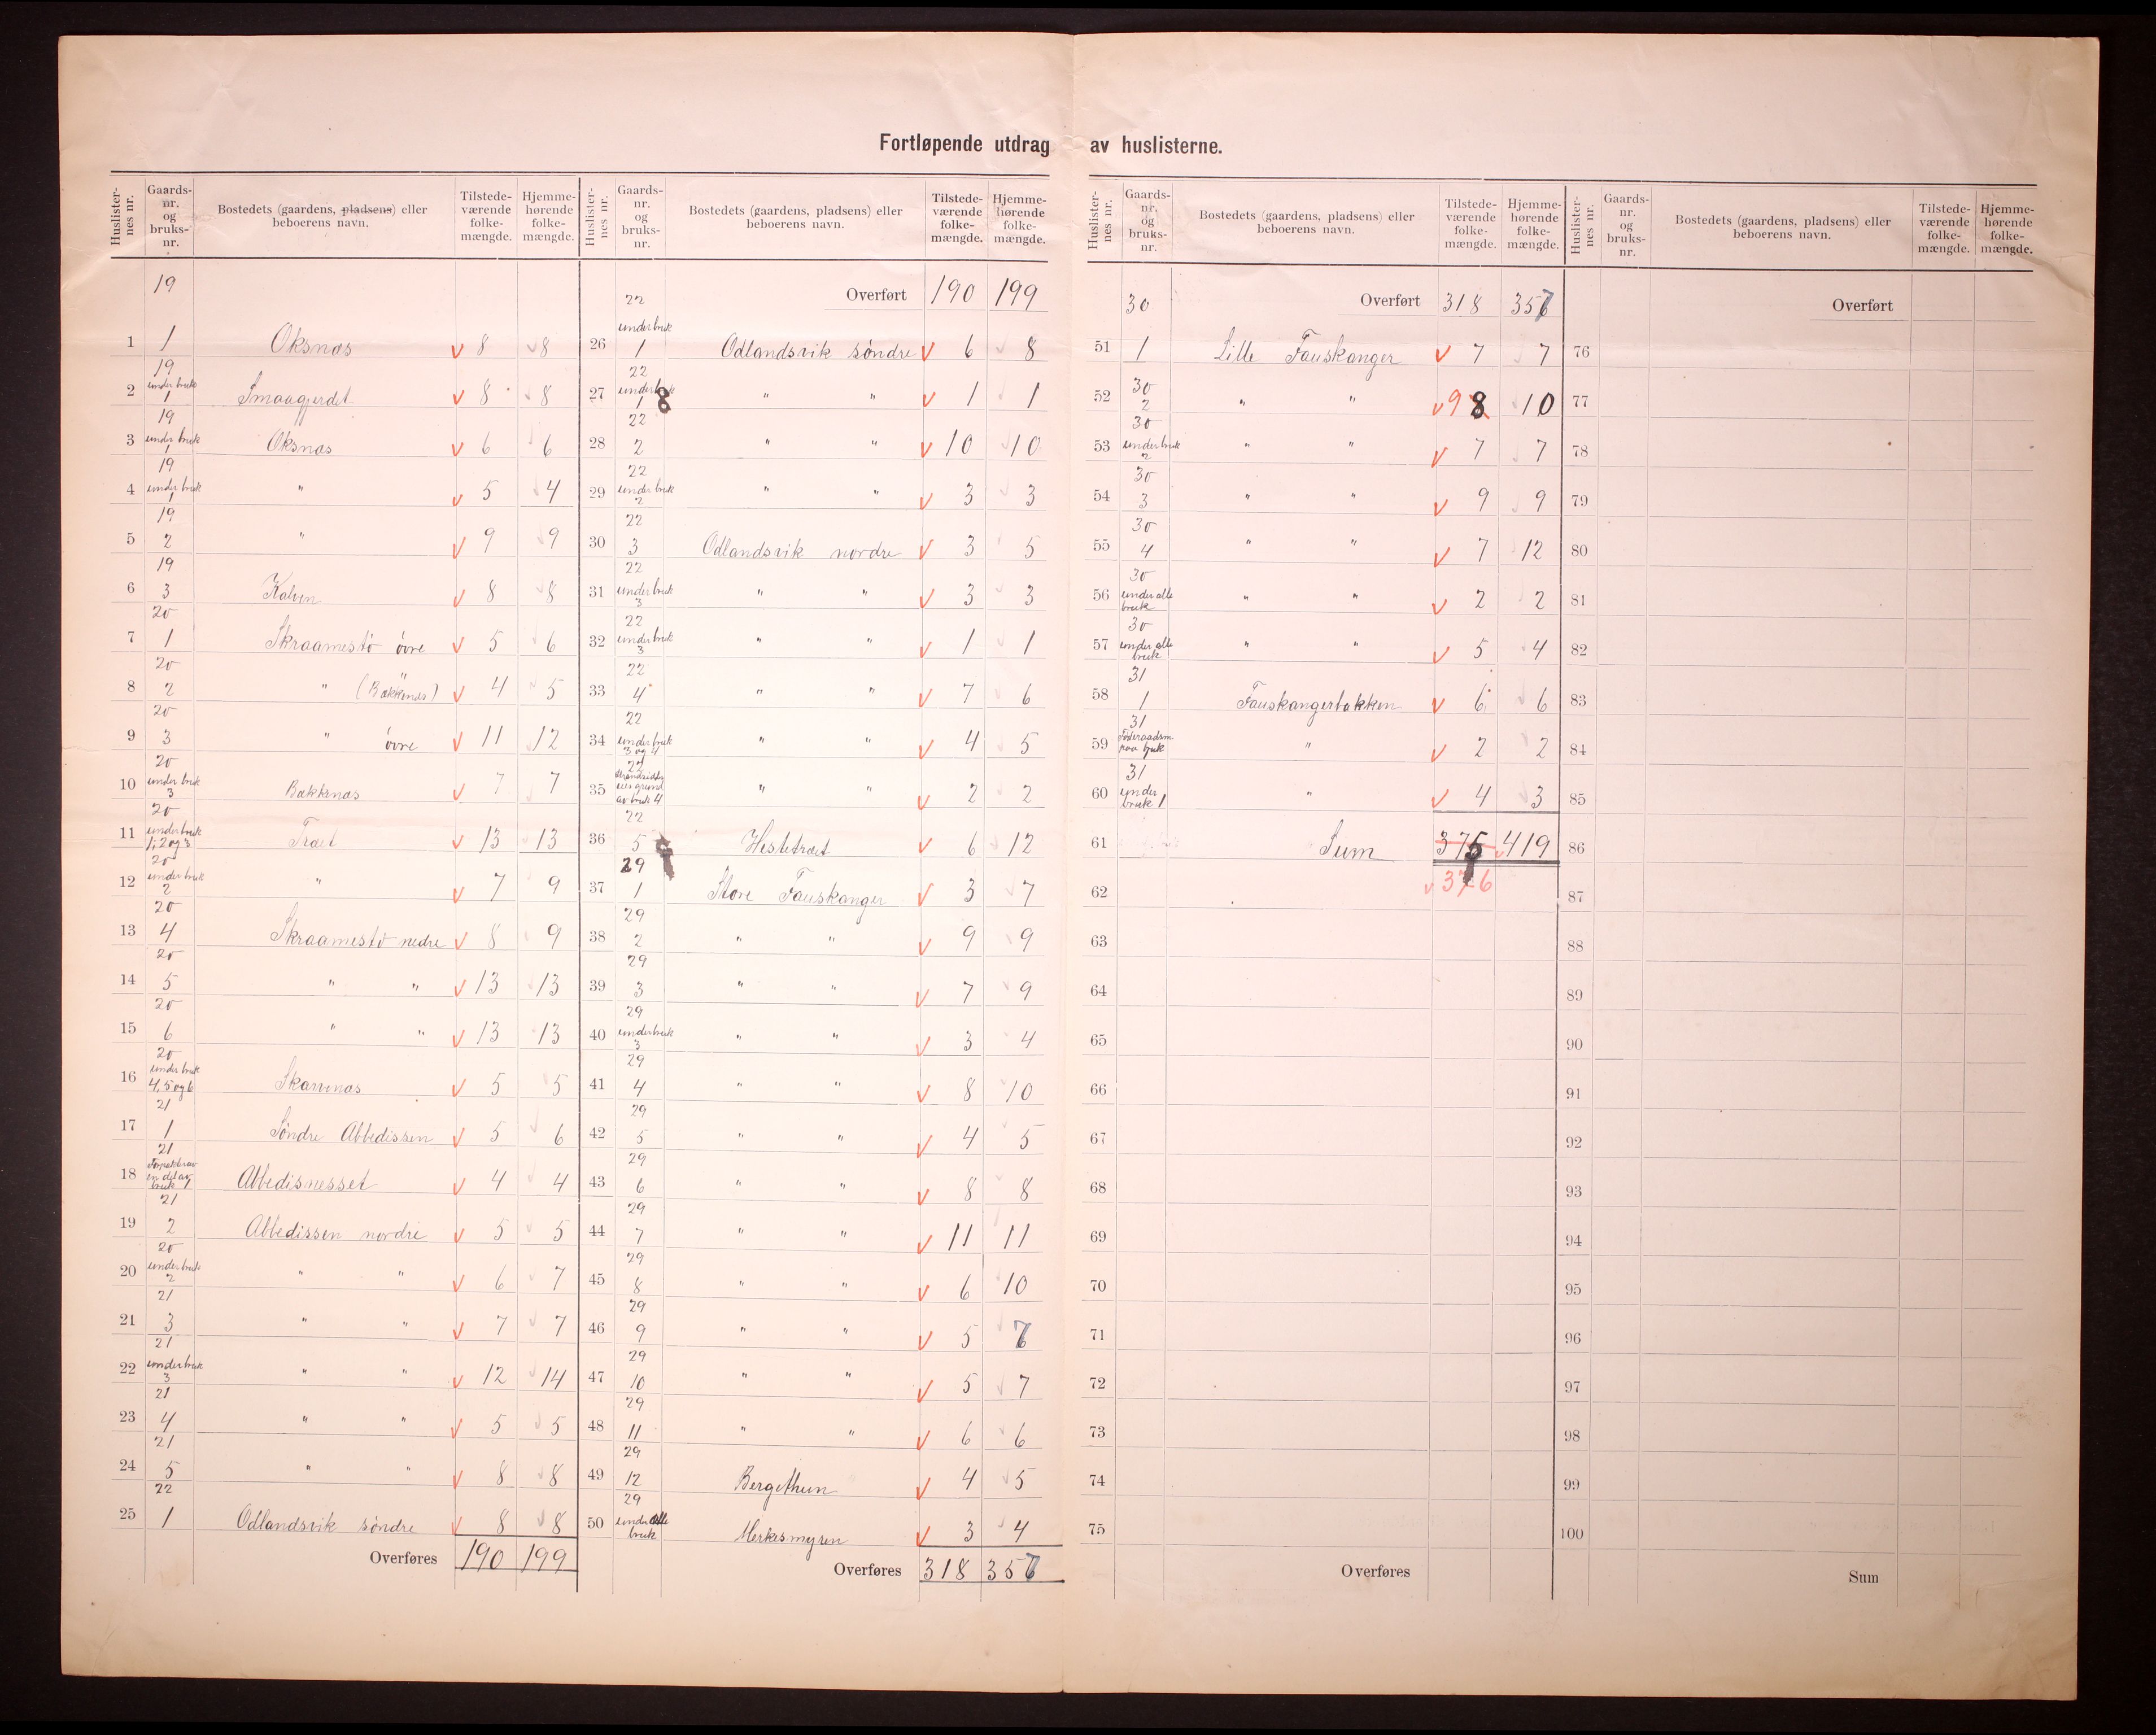 Fortløpende utdrag av huslisterne.
Huslister-nes nr. | Gaards-nr. og bruks-nr. | Bostedets (gaardens, pladsens) eller beboerens navn. | Tilstede-værende folke-mængde. | Hjemme-hørende folke-mængde.
1 | 19 1 | Oksnæs | 8 | 8
2 | 19 under bruk 1 | Smaagjerdet | 8 | 8
3 | 19 under bruk 1 | Oksnæs | 6 | 6
4 | 19 under bruk 1 | " | 5 | 4
5 | 19 2 | " | 9 | 9
6 | 19 3 | Kalven | 8 | 8
7 | 20 1 | Skraamestø øvre | 5 | 6
8 | 20 2 | " (Bakkenæs) " | 4 | 5
9 | 20 3 | " øvre | 11 | 12
10 | 20 under bruk 3 | Bakknæs | 7 | 7
11 | 20 under bruk 1, 2 og 3 | Træet | 13 | 13
12 | 20 under bruk 2 | " | 7 | 9
13 | 20 4 | Skraamestø nedre | 8 | 9
14 | 20 5 | " " | 13 | 13
15 | 20 6 | " " | 13 | 13
16 | 20 under bruk 4, 5 og 6 | Skarvnæs | 5 | 5
17 | 21 1 | Søndre Abbedissen | 5 | 6
18 | 21 en del av bruk 1 | Abbedisnesset | 4 | 4
19 | 21 2 | Abbedissen nordre | 5 | 5
20 | 20 under bruk 2 | " " | 6 | 7
21 | 21 3 | " " | 7 | 7
22 | 21 under bruk 3 | " " | 12 | 14
23 | 21 4 | " " | 5 | 5
24 | 21 5 | " " | 8 | 8
25 | 22 1 | Odlandsvik søndre | 8 | 8
Overføres | 190 | 199
Huslister-nes nr. | Gaards-nr. og bruks-nr. | Bostedets (gaardens, pladsens) eller beboerens navn. | Tilstede-værende folke-mængde. | Hjemme-hørende folke-mængde.
Overført | 190 | 199
26 | 22 under bruk 1 | Odlandsvik søndre | 6 | 8
27 | 22 under bruk 1 8 | " " | 1 | 1
28 | 22 2 | " " | 10 | 10
29 | 22 under bruk 2 | " " | 3 | 3
30 | 22 3 | Odlandsvik nordre | 3 | 5
31 | 22 under bruk 3 | " " | 3 | 3
32 | 22 under bruk 3 | " " | 1 | 1
33 | 22 4 | " " | 7 | 6
34 | 22 under bruk 3 og 4 | " " | 4 | 5
35 | 22 av bruk 4 | " " | 2 | 2
36 | 22 5 | Hestetræet | 6 | 12
37 | 29 1 | Store Fauskanger | 3 | 7
38 | 29 2 | " " | 9 | 9
39 | 29 3 | " " | 7 | 9
40 | 29 under bruk 3 | " " | 3 | 4
41 | 29 4 | " " | 8 | 10
42 | 29 5 | " " | 4 | 5
43 | 29 6 | " " | 8 | 8
44 | 29 7 | " " | 11 | 11
45 | 29 8 | " " | 6 | 10
46 | 29 9 | " " | 5 | 7
47 | 29 10 | " " | 5 | 7
48 | 29 11 | " " | 6 | 6
49 | 29 12 | Bergethun | 4 | 5
50 | 29 under alle bruk | Merkesmyren | 3 | 4
Overføres | 318 | 357
Huslister-nes nr. | Gaards-nr. og bruks-nr. | Bostedets (gaardens, pladsens) eller beboerens navn. | Tilstede-værende folke-mængde. | Hjemme-hørende folke-mængde.
Overført | 318 | 357
51 | 30 1 | Lille Fauskanger | 7 | 7
52 | 30 2 | " " | 9 8 | 10
53 | 30 under bruk 2 | " " | 7 | 7
54 | 30 3 | " " | 9 | 9
55 | 30 4 | " " | 7 | 12
56 | 30 under alle bruk | " " | 2 | 2
57 | 30 under alle bruk | " " | 5 | 4
58 | 31 1 | Fauskangerbakken | 6 | 6
59 | 31 Føderaadsm paa bruk | " | 2 | 2
60 | 31 under bruk 1 | " | 4 | 3
61 | Sum | 375 | 419
62 | 376
63
64
65
66
67
68
69
70
71
72
73
74
75
Overføres
Huslister-nes nr. | Gaards-nr. og bruks-nr. | Bostedets (gaardens, pladsens) eller beboerens navn. | Tilstede-værende folke-mængde. | Hjemme-hørende folke-mængde.
Overført
76
77
78
79
80
81
82
83
84
85
86
87
88
89
90
91
92
93
94
95
96
97
98
99
100
Sum